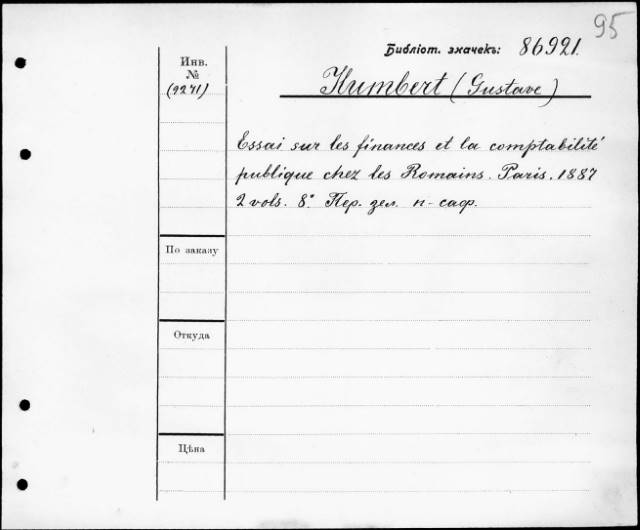 95
Библіот. значекъ: 86921.
Инв.
№
(2271)
Humbert (Gustave)
Essai sur les finances et la comptabilité
publique chez les Romains. Paris. 1887
2 vols. 8º Пер. зел. п-саф.
По заказу
Откуда
Цѣна